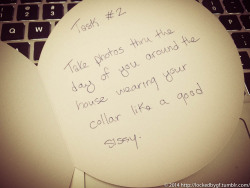 Task #2
Take photos thru the
day of you around the
house wearing your
collar like a good
sissy.
©2014 http://lockedbygf.tumblr.com